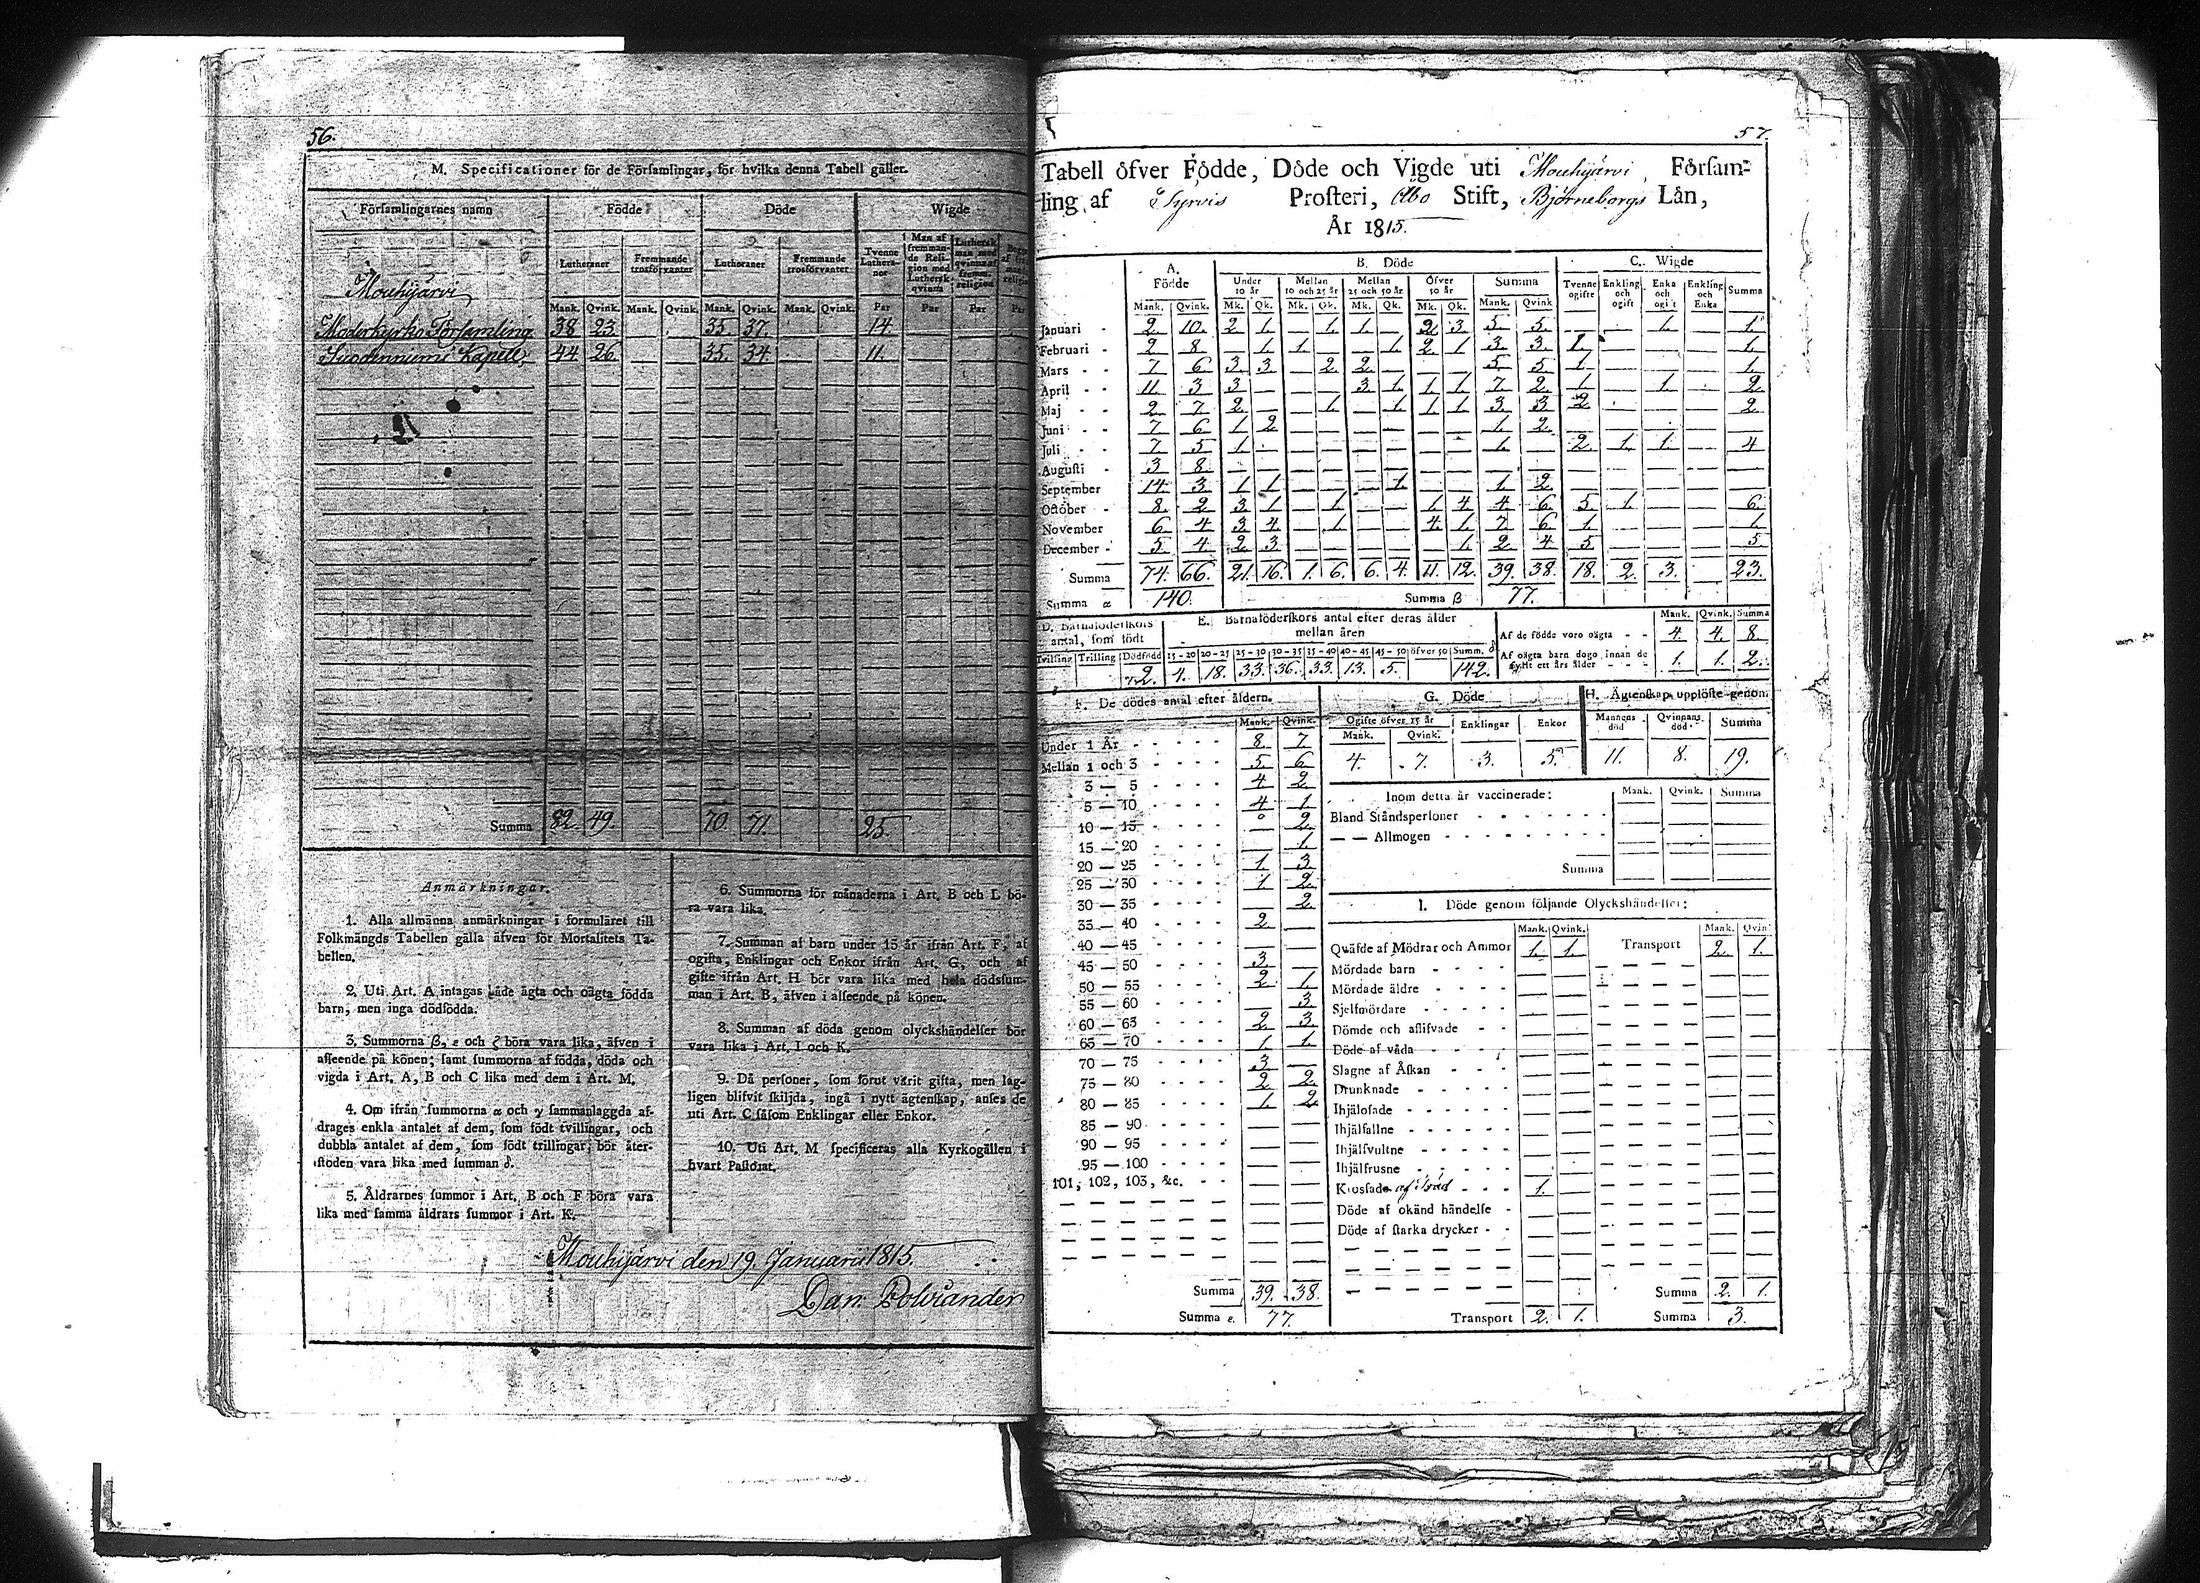 56.
M. Specificationer för de Församlingar, för hvilka denna Tabell gäller.
Församlingarnes namn Födde Döde Wigde
Lutheraner Fremmande trosförvanter Lutheraner Fremmande trosförvanter Tvenne Lutheraner Man af fremmande Religion med Luthersk qvinna Luthersk man med qvinna af fremm. religion
Mouhijärvi
Mank. Qvink. Mank. Qvink. Mank. Qvink. Mank. Qvink. Par Par Par
Moderkyrko Församling 38 23 35. 37. 14.
Suodenniemi Kapell, 44 26 35. 34. 11.
Summa 82. 49. 70. 71. 25.
Anmärkningar.
1. Alla allmänna anmärkningar i formuläret till
Folkmängds Tabellen gälla äfven för Mortalitets Ta-
bellen.
2. Uti Art. A intagas både ägta och oägta födda
barn, men inga dödfödda.
3. Summorna β, ε och ζ böra vara lika, äfven i
afseende på könen; samt summorna af födda, döda och
vigda i Art. A, B och C lika med dem i Art. M.
4. Om ifrån summorna α och γ sammanlaggda af-
drages enkla antalet af dem, som födt tvillingar, och
dubbla antalet af dem, som födt trillingar, bör åter-
stoden vara lika med summan δ.
5. Åldrarnes summor i Art. B och F böra vara
lika med samma åldrars summor i Art. K.
6. Summorna för månaderna i Art. B och L bö-
ra vara lika.
7. Summan af barn under 15 år ifrån Art. F, af
ogifta, Enklingar och Enkor ifrån Art. G, och af
gifte ifrån Art. H bör vara lika med hela dödssum-
man i Art. B, äfven i afseende på könen.
8. Summan af döda genom olyckshändelser bör
vara lika i Art. I och K.
9. Då personer, som förut varit gifta, men lag-
ligen blifvit skiljda, ingå i nytt ägtenskap, anses de
uti Art. C såsom Enklingar eller Enkor.
10. Uti Art. M specificeras alla Kyrkogällen i
hvart Pastorat.
Mouhijärvi den 19. Januarii 1815.
Dan. Polviander
57.
Tabell öfver Födde, Döde och Vigde uti Mouhijärvi Försam-
ling af Tyrvis Prosteri, Åbo Stift, Björneborgs Län,
År 1815.
A. Födde B. Döde C. Wigde
Under 10 år Mellan 10 och 25 år Mellan 25 och 50 år Öfver 50 år Summa Tvenne ogifte Enkling och ogift Enka och ogift Enkling och Enka Summa
Mank. Qvink. Mk. Qk. Mk. Qk. Mk. Qk. Mk. Qk. Mank. Qvink
Januari 2. 10. 2 1. — 1. 1. — 2. 3. 5. 5. — — 1. — 1.
Februari 2. 8. — 1. 1. — — 1. 2. 1. 3. 3. 1. — — — 1.
Mars 7. 6. 3. 3. — 2. 2. — — — 5. 5. 1. — — — 1.
April 11. 3. 3. — — — 3. 1. 1. 1. 7. 2. 1. — 1. — 2.
Maj 2. 7. 2. — — 1. — 1. 1. 1. 3. 3. 2. — — — 2.
Juni 7. 6. 1. 2. — — — — — — 1. 2. — — — — —
Juli 7. 5. 1. — — — — — — — 1. — 2. 1. 1. — 4.
Augusti 3. 8. — — — — — — — — — — — — — — —
September 14. 3. 1. 1. — — — 1. — — 1. 2. — — — — —
October 8. 2. 3. 1. — 1. — — 1. 4. 4. 6. 5. 1. — — 6.
November 6. 4. 3. 4. — 1. — — 4. 1. 7. 6. 1. — — — 1.
December 5. 4. 2. 3. — — — — — 1. 2. 4. 5. — — — 5.
Summa 74. 66. 21. 16. 1. 6. 6. 4. 11. 12. 39. 38. 18. 2. 3. — 23.
Summa α 140. Summa β 77.
D. Barnaföderskors antal, som födt
Tvilling Trilling Dödfödd
2.
E. Barnaföderskors antal efter deras ålder
mellan åren
15-20 20-25 25-30 30-35 35-40 40-45 45-50 öfver 50 Summ. δ
4. 18. 33. 36. 33. 13. 5. 142.
Mank. Qvink. Summa
Af de födde voro oägta - - 4. 4. 8.
Af oägta barn dogo innan de
fyllt ett års ålder - - - 1. 1. 2.
F. De dödes antal efter åldern.
Mank. Qvink.
Under 1 År 8. 7.
Mellan 1 och 3 5. 6.
3 — 5 4. 2.
5 — 10 4. 1
10 — 15 — 2.
15 — 20 — 1.
20 — 25 1. 3.
25 — 30 1. 2.
30 — 35 — 2.
35 — 40 2. —
40 — 45 — —
45 — 50 3. —
50 — 55 2. 1.
55 — 60 — 3.
60 — 65 2. 3.
65 — 70 1. 1.
70 — 75 3. —
75 — 80 2. 2.
80 — 85 1. 2.
85 — 90 — —
90 — 95 — —
95 — 100 — —
101, 102, 103, &c. — —
Summa 39. 38.
Summa ε. 77.
G. Döde
Ogifte öfver 15 år Enklingar Enkor
Mank. Qvink.
4. 7. 3. 5.
H. Ägtenskap upplöste genom
Mannens död Qvinnans död Summa
11. 8. 19.
Inom detta år vaccinerade: Mank. Qvink. Summa
Bland Ståndspersoner
— — Allmogen
Summa
I. Döde genom följande Olyckshändelser:
Mank. Qvink. Mank. Qvin
Qväfde af Mödrar och Ammor 1. 1. Transport 2. 1.
Mördade barn
Mördade äldre
Sjelfmördare
Dömde och aflifvade
Döde af våda
Slagne af Åskan
Drunknade
Ihjälosade
Ihjälfallne
Ihjälsvultne
Ihjälfrusne
Krossade af träd 1.
Döde af okänd händelse
Döde af starka drycker
Summa 2. 1.
Transport 2. 1. Summa 3.